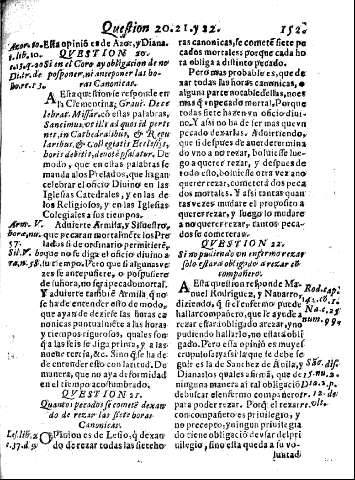 Question 20. 21. y 22. 152
Azor. to. Esta opinió es de Azor, y Diana.
1. lib. 10. QVESTION 20.
Si en el Coro ay obligacion de no
posponer, ni anteponer las ho-
ras Canonicas.
A Esta questió se responde en
la Clementina, Graui. De ce
lebrat. Missar. có estas palabras,
Sancimus, vt illis ad quos id perti
net, in Cathedralibus, & Regu
laribus, & Collegiatis Ecclesijs,
horis debitis, deuotè psalatur. De
modo, que en estas palabras se
manda a los Prelados, que hagan
celebrar el oficio Diuino en las
Iglesias Catedrales, y en las de
los Religiosos, y en las Iglesias
Colegiales a sus tiempos.
Arm. V. Aduierte Armila, y Silvestro,
hora, nu. que pecarán mortalméte los Pre
37. lados si de ordinario permitieré,
Sil. V. bo que no se diga el oficio diuino a
ra, n. 58. su tiépo. Pero que si alguna ve-
zes se antepusiere, o pospusiere
de suhora, no será pecado mortal.
Y aduierte tambié Armila q̃ no
se ha de entender esto de modo,
que ayan de dezirse las horas ca
nonicas puntualméte a las horas
y tiempos rigurosos, quales son
q̃ a las seis se diga prima, y a las
nueue tercia, &c. Sino q̃ se ha de
de entender esto con latitud. De
manera, que no aya deformidad
en el tiempo acostumbrado.
QVESTION 21.
Quantos pecados se cometé dexan
do de rezar las siete horas
Canonicas.
Les. lib. 2. OPinion es de Lesio, q̃ dexan
c. 37. d. 9. do de rezar todas las siete ho
ras canonicas, se cometen siete pe
cados mortales porque cada ho
ra obliga a distinto pecado.
Pero mas probable es, que de
xar todas las horas canonicas, o
alguna parte notable dellas, no es
mas q̃ un pecado mortal. Porque
todas siete hazen vn oficio diui-
no. Y assi no ha de ser mas que vn
pecado dexarlas. Aduirtiendo,
que si despues de auer determina
do vno a no rezar, boluiesse lue-
go a querer rezar, y despues de
todo esto, boluiesse otra vez a no
querer rezar, cometerá dos peca
dos mortales. Y assi tantas quan
tas vezes mudare el proposito a
querer rezar, y luego lo mudare
a no querer rezar, tantos peca-
dos se cometerá.
QVESTION 22.
Si no pudiendo un enfermo rezar
solo estará obligado a rezar có
compañero.
A Esta question responde Ma-
nuel Rodriguez, y Nauarro,
diziendo, q̃ si el enfermo puede
hallar compañero, que le ayude a
rezar estará obligado a rezar, y no
pudiendo hallarlo, no estará obli
gado. Pero esta opinion es muy es
crupulosa y assi la que se debe se
guir es la de Sanchez de Auila, y
Diana los quales afirmá, que de
ninguna manera ai tal obligació
de buscar el enfermo compañero
para poder rezar. Porq̃ el rezar
con compañero es priuilegio, y
no precepto, y ningun priuilegia
do tiene obligació de vsar del pri
uilegio, sino esta queda a su vo-
luntad